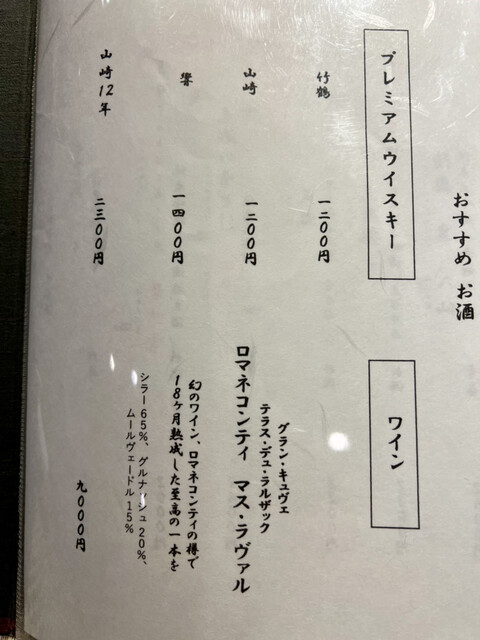 おすすめ お酒
プレミアムウイスキー
竹鶴 一二00円
山崎 一二00円
響 一四00円
山崎12年 二三00円
ワイン
グラン・キュヴェ
テラス・デュ・ラルザック
ロマネコンティ マス・ラヴァル
幻のワイン、ロマネコンティの樽で
18ヶ月熟成した至高の一本を
シラー65%、グルナッシュ20%、
ムールヴェードル15%
九000円